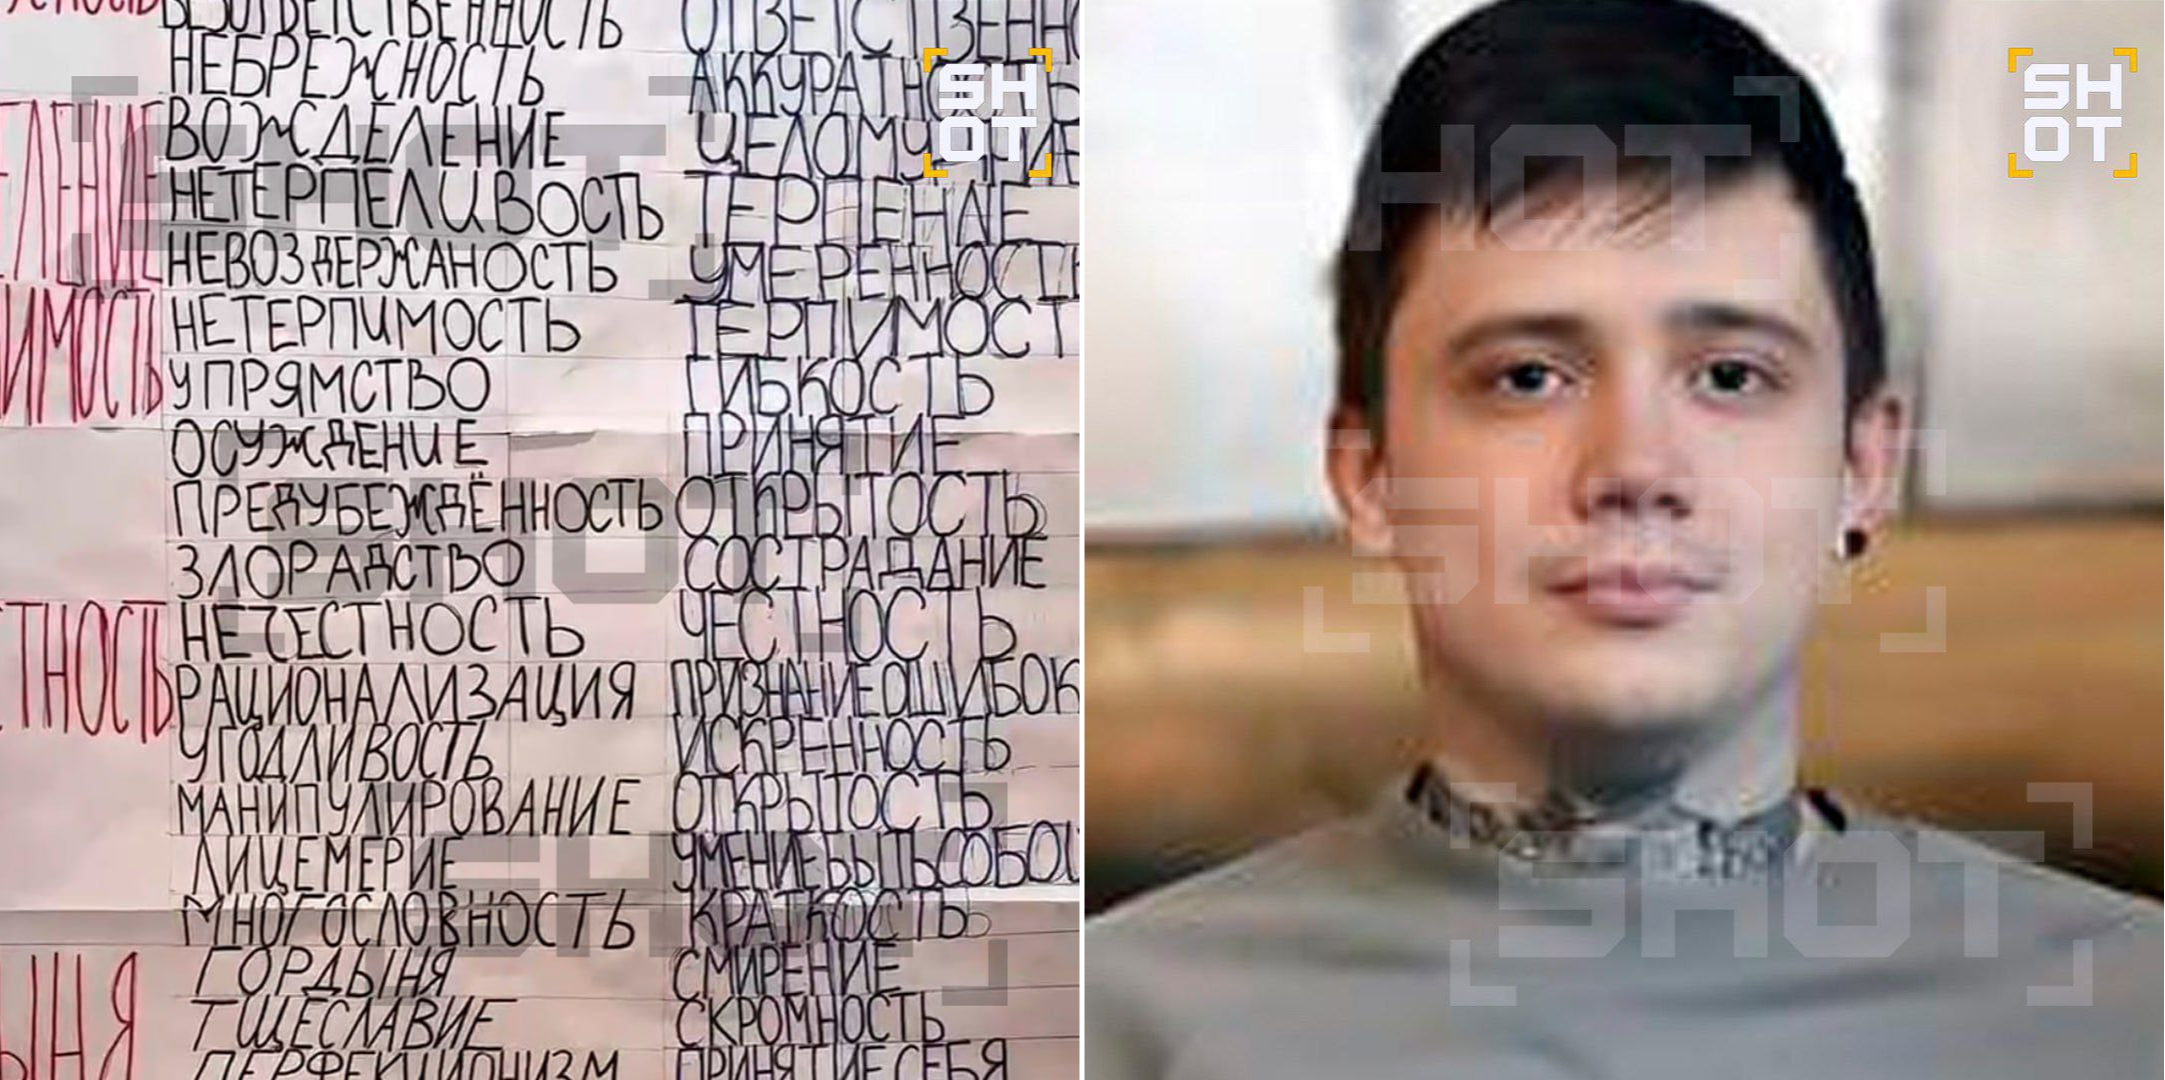 БЕЗОТВЕТСТВЕННОСТЬ ОТВЕТСТВЕННО
НЕБРЕЖНОСТЬ АККУРАТНОСТЬ
ЕЛЕНИЕ ВОЖДЕЛЕНИЕ ЦЕЛОМУДРИЕ
НЕТЕРПЕЛИВОСТЬ ТЕРПЕНИЕ
НЕВОЗДЕРЖАНОСТЬ УМЕРЕННОСТЬ
ИМОСТЬ НЕТЕРПИМОСТЬ ТЕРПИМОСТ
УПРЯМСТВО ГИБКОСТЬ
ОСУЖДЕНИЕ ПРИНЯТИЕ
ПРЕДУБЕЖДЁННОСТЬ ОТКРЫТОСТЬ
ЗЛОРАДСТВО СОСТРАДАНИЕ
ТНОСТЬ НЕЧЕСТНОСТЬ ЧЕСТНОСТЬ
РАЦИОНАЛИЗАЦИЯ ПРИЗНАНИЕ ОШИБОК
УГОДЛИВОСТЬ ИСКРЕННОСТЬ
МАНИПУЛИРОВАНИЕ ОТКРЫТОСТЬ
ЛИЦЕМЕРИЕ УМЕНИЕ БЫТЬ СОБОЙ
МНОГОСЛОВНОСТЬ КРАТКОСТЬ
ЫНЯ ГОРДЫНЯ СМИРЕНИЕ
ТЩЕСЛАВИЕ СКРОМНОСТЬ
ПЕРФЕКЦИОНИЗМ ПРИНЯТИЕ СЕБЯ
SHOT
SHOT